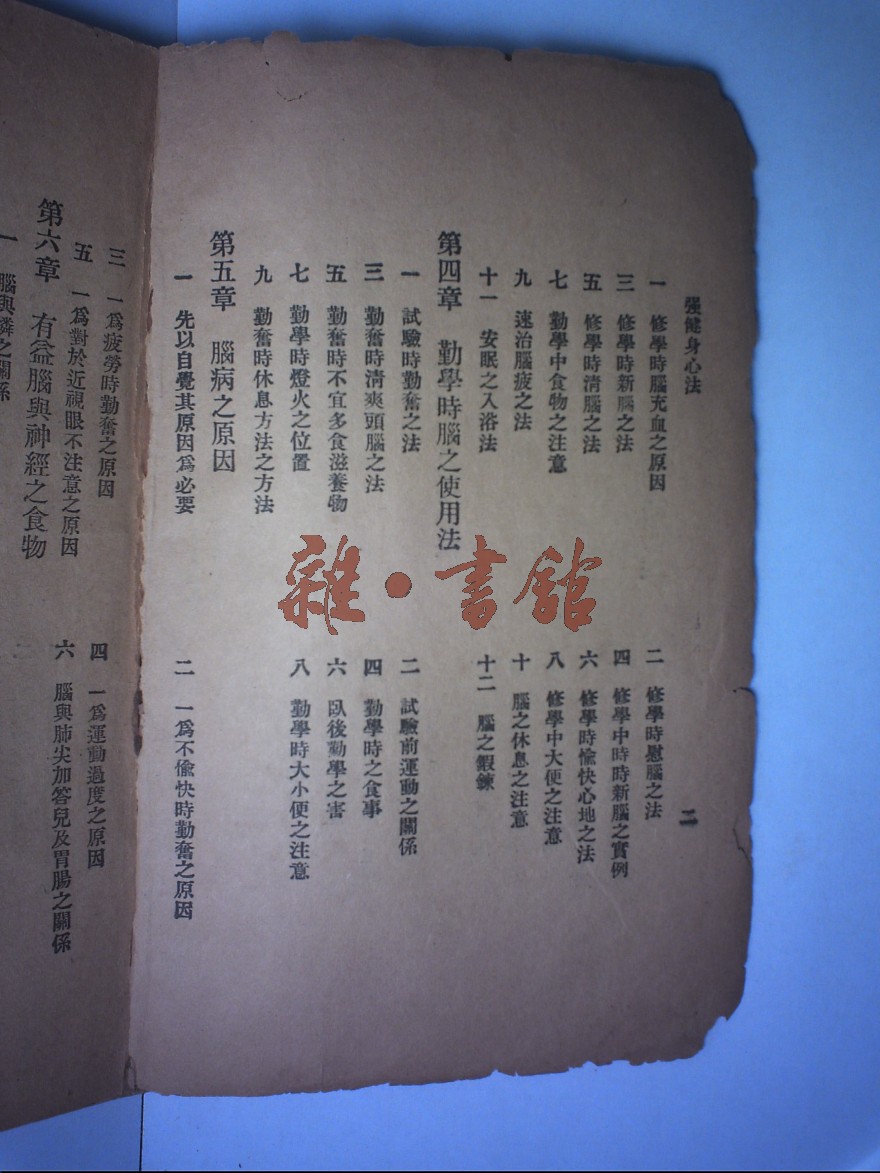 强健身心法
二
一 修學時腦充血之原因
二 修學時慰腦之法
三 修學時新腦之法
四 修學中時時新腦之實例
五 修學時清腦之法
六 修學時愉快心地之法
七 勤學中食物之注意
八 修學中大便之注意
九 速治腦疲之法
十 腦之休息之注意
十一 安眠之入浴法
十二 腦之鍛鍊
第四章 勤學時腦之使用法
一 試驗時勤奮之法
二 試驗前運動之關係
三 勤奮時清爽頭腦之法
四 勤學時之食事
五 勤奮時不宜多食滋養物
六 臥後勤學之害
七 勤學時燈火之位置
八 勤學時大小便之注意
九 勤奮時休息方法之方法
第五章 腦病之原因
一 先以自覺其原因爲必要
二 一爲不愉快時勤奮之原因
三 一爲疲勞時勤奮之原因
四 一爲運動過度之原因
五 一爲對於近視眼不注意之原因
六 腦與肺尖加答兒及胃腸之關係
第六章 有益腦與神經之食物
一 腦與燐之關係
雜·書館